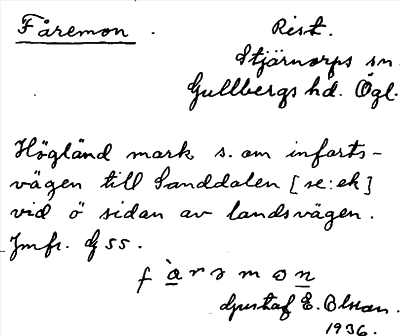 Fåremon. Rist.
Stjärnorps sn.
Gullbergs hd. Ögl.
Högländ mark s. om infarts-
vägen till Sanddalen [se: ek]
vid ö sidan av landsvägen.
Jmfr. G SS.
f à r ə m o n
Gustaf E. Olsson.
1936.